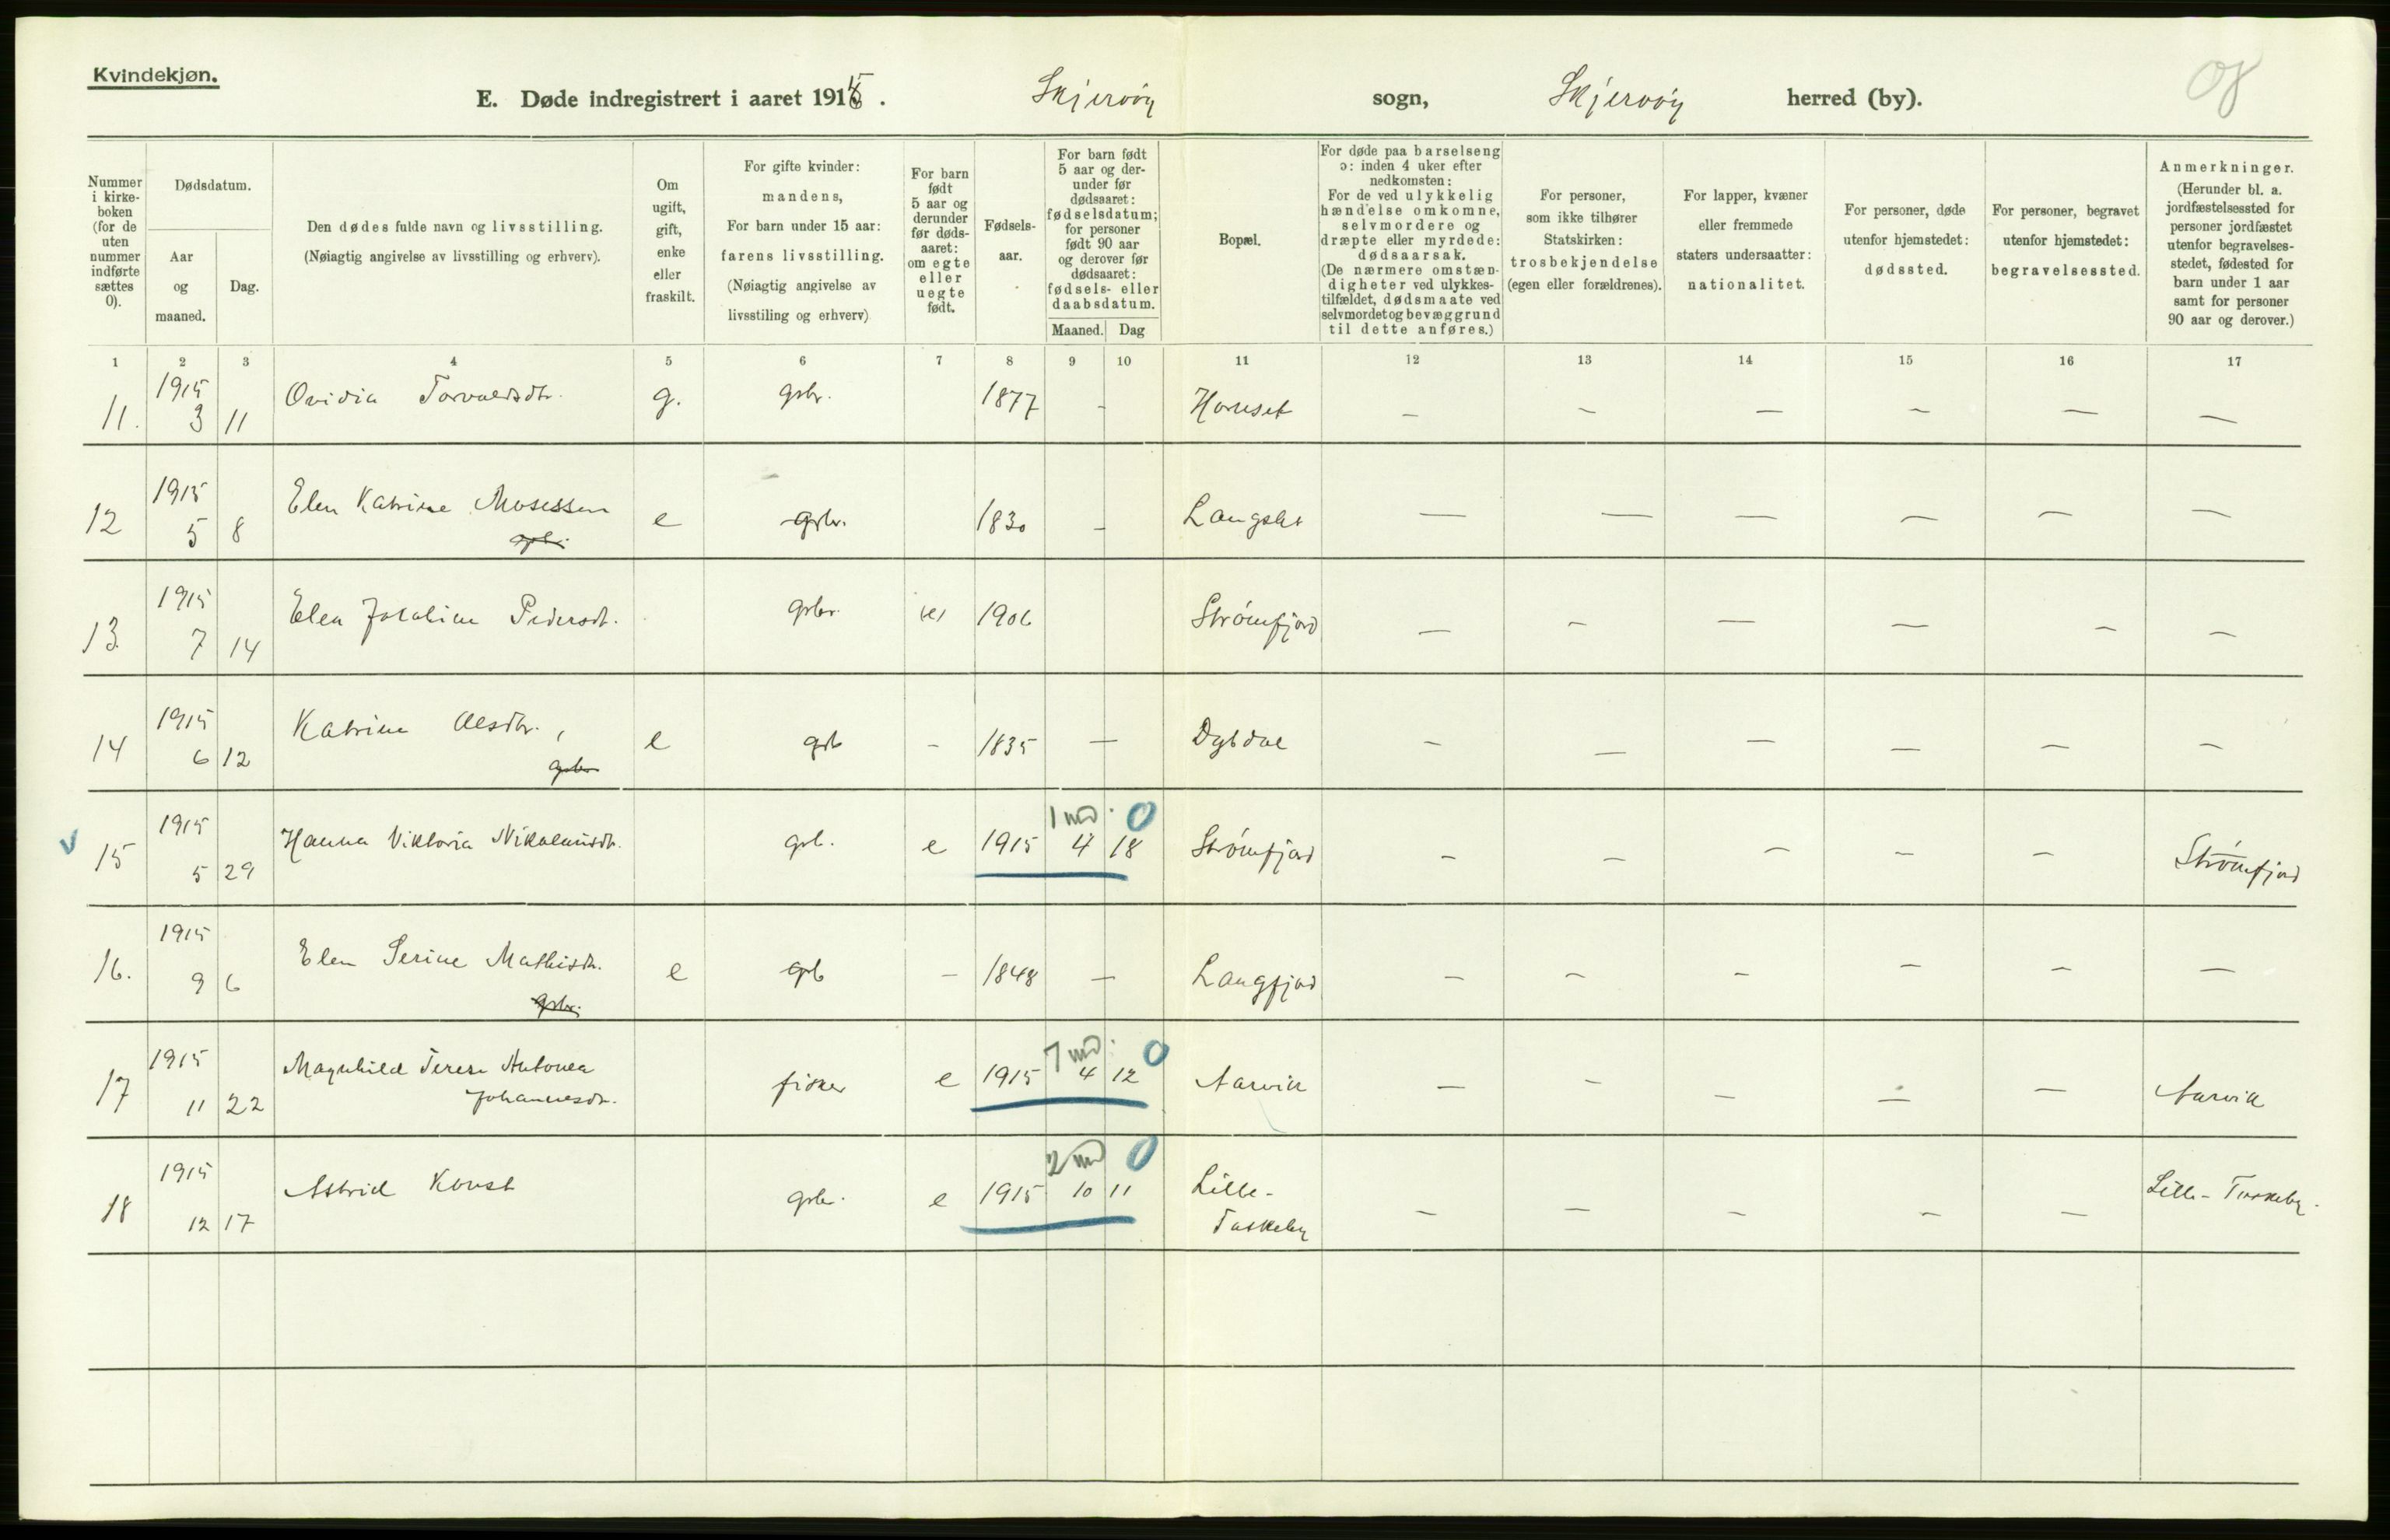 Kvindekjøn.
E. Døde indregistrert i aaret 1915. Skjervöy sogn, Skjervöy herred (by).
08
Nummer i kirke- boken (for de uten nummer indførte sættes 0).
Dødsdatum.
Aar og maaned.
Dag.
Den dødes fulde navn og livsstilling.
(Nøiagtig angivelse av livsstilling og erhverv).
Om ugift, gift, enke eller fraskilt.
For gifte kvinder: mandens,
For barn under 15 aar: farens livsstilling.
(Nøiagtig angivelse av livsstiling og erhverv)
For barn født 5 aar og derunder før døds- aaret: om egte eller uegte født.
Fødsels- aar.
For barn født 5 aar og der- under før dødsaaret: fødselsdatum; for personer født 90 aar og derover før dødsaaret: fødsels- eller daabsdatum.
Maaned. Dag
Bopæl.
For døde paa barselseng ɔ: inden 4 uker efter nedkomsten:
For de ved ulykkelig hændelse omkomne, selvmordere og dræpte eller myrdede: dødsaarsak.
(De nærmere omstæn- digheter ved ulykkes- tilfældet, dødsmaate ved selvmordet og bevæggrund til dette anføres.)
For personer, som ikke tilhører Statskirken: trosbekjendelse (egen eller forældrenes).
For lapper, kvæner eller fremmede staters undersaatter: nationalitet.
For personer, døde utenfor hjemstedet: dødssted.
For personer, begravet utenfor hjemstedet: begravelsessted.
Anmerkninger.
(Herunder bl. a. jordfæstelsessted for personer jordfæstet utenfor begravelses- stedet, fødested for barn under 1 aar samt for personer 90 aar og derover.)
1 2 3 4 5 6 7 8 9 10 11 12 13 14 15 16 17
11. 1915 3 11 Ovidia Torvaldsdtr. g. gsbr. 1877 - Hamset — — — — — —
12 1915 5 8 Elen Katrine Mosessen e gsbr. 1830 - Langslet — — — — — —
13 1915 7 14 Elen Jokabine Pedersdt. gsbr. (e) 1906 Strömfjord — — — — — —
14 1915 6 12 Katrine Olsdtr., e gsb - 1835 — Dybdal — — — — — —
gsbr
1 md. 0
v 15 1915 5 29 Hanna Viktoria Nikolaisdtr. gsb. e 1915 4 18 Strömfjord — — — — — Strömfjord
16. 1915 9 6 Elen Serine Mathisdtr. e gsb - 1848 — Langfjord — — — — — —
gsbr.
7 md. 0
17 1915 11 22 Magnhild Terese Antonea fisker e 1915 4 12 Aarvik — — — — — Aarvik
Johannesdtr.
2 md 0
18 1915 12 17 Astrid Kvust gsbr. e 1915 10 11 Lille- — — — — — Lille- Taskeby.
Taskeby